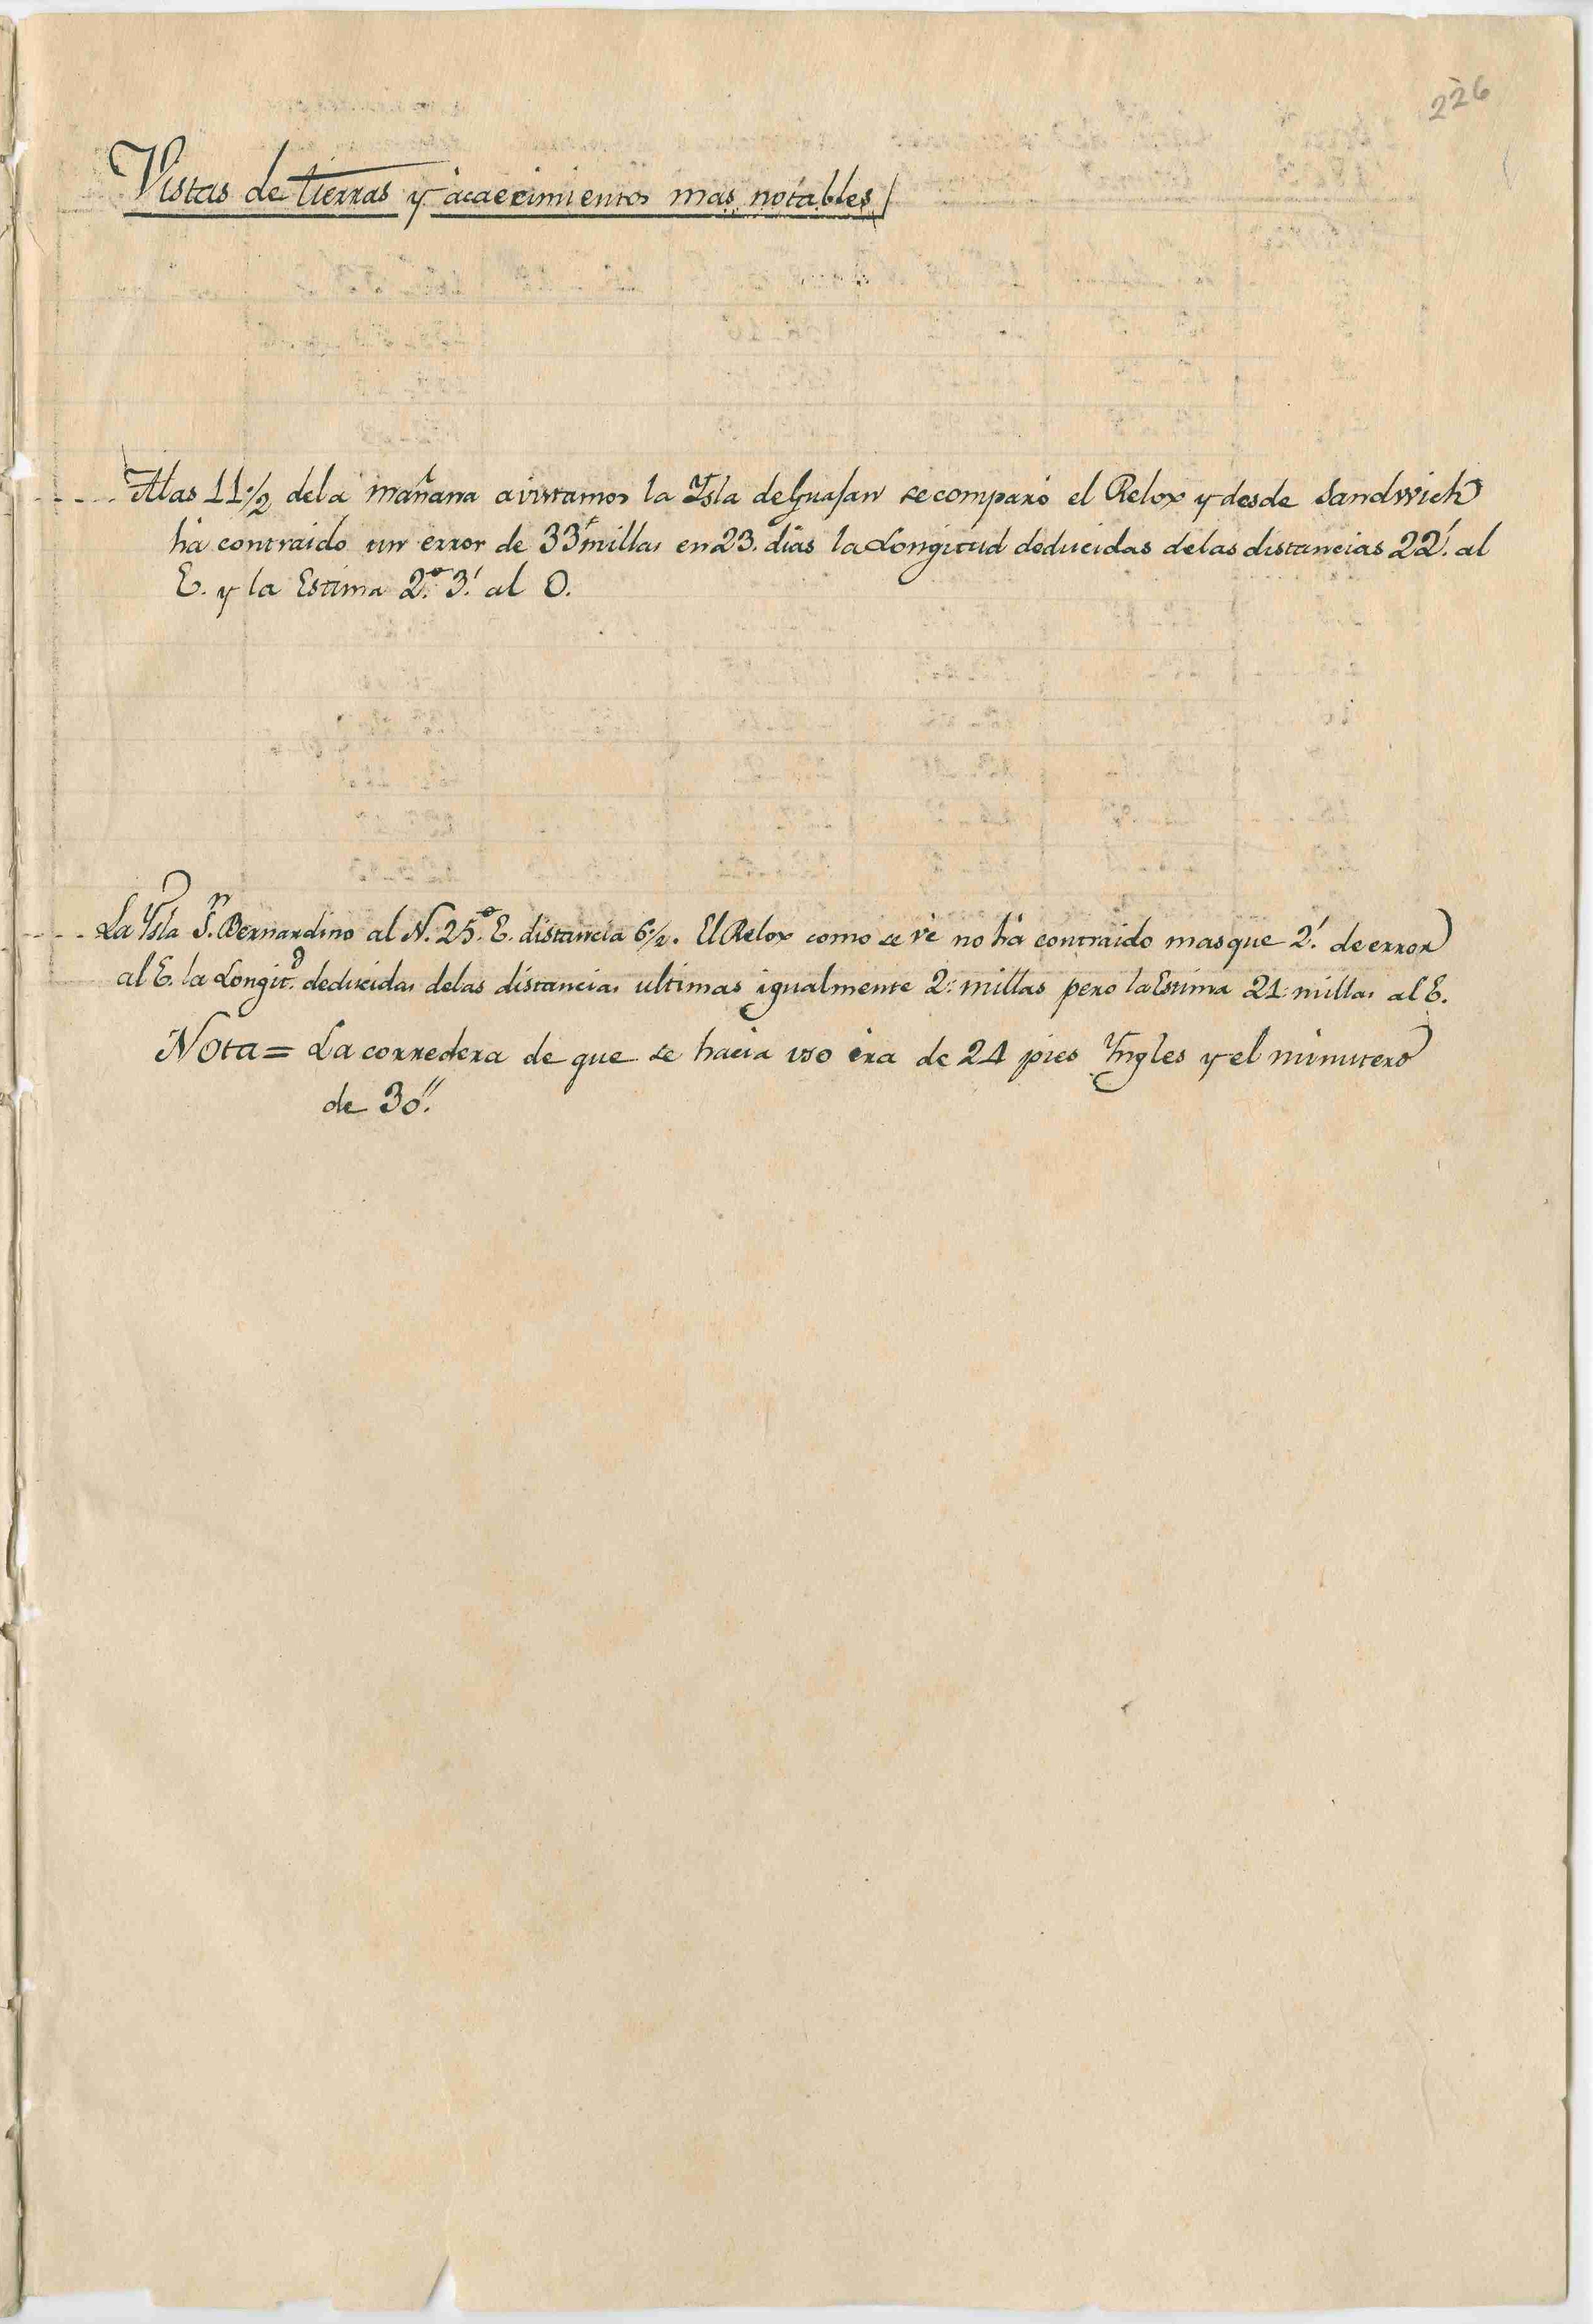 226
Vistas de tierras y àcaecimientos mas notables/
---- Alas 11½ dela mañana avistamos la Ysla de Guajan se comparó el Relox y desde Sandwich
há contraido un error de 33' millas en 23. dias la Longitud deducidas delas distancias 22.' al
E. y la Estima 2.° 3.' al O.
---- La Ysla S.n Bernardino al N. 25.° E. distancia 6½. El Relox como se vé no há contraido mas que 2.' de error
al E. la Longit.d deducidas delas distancias ultimas igualmente 2. millas pero la Estima 21 millas al E.
Nota = La corredera de que se hacia uso éra de 24 pies Yngles y el minutero
de 30".